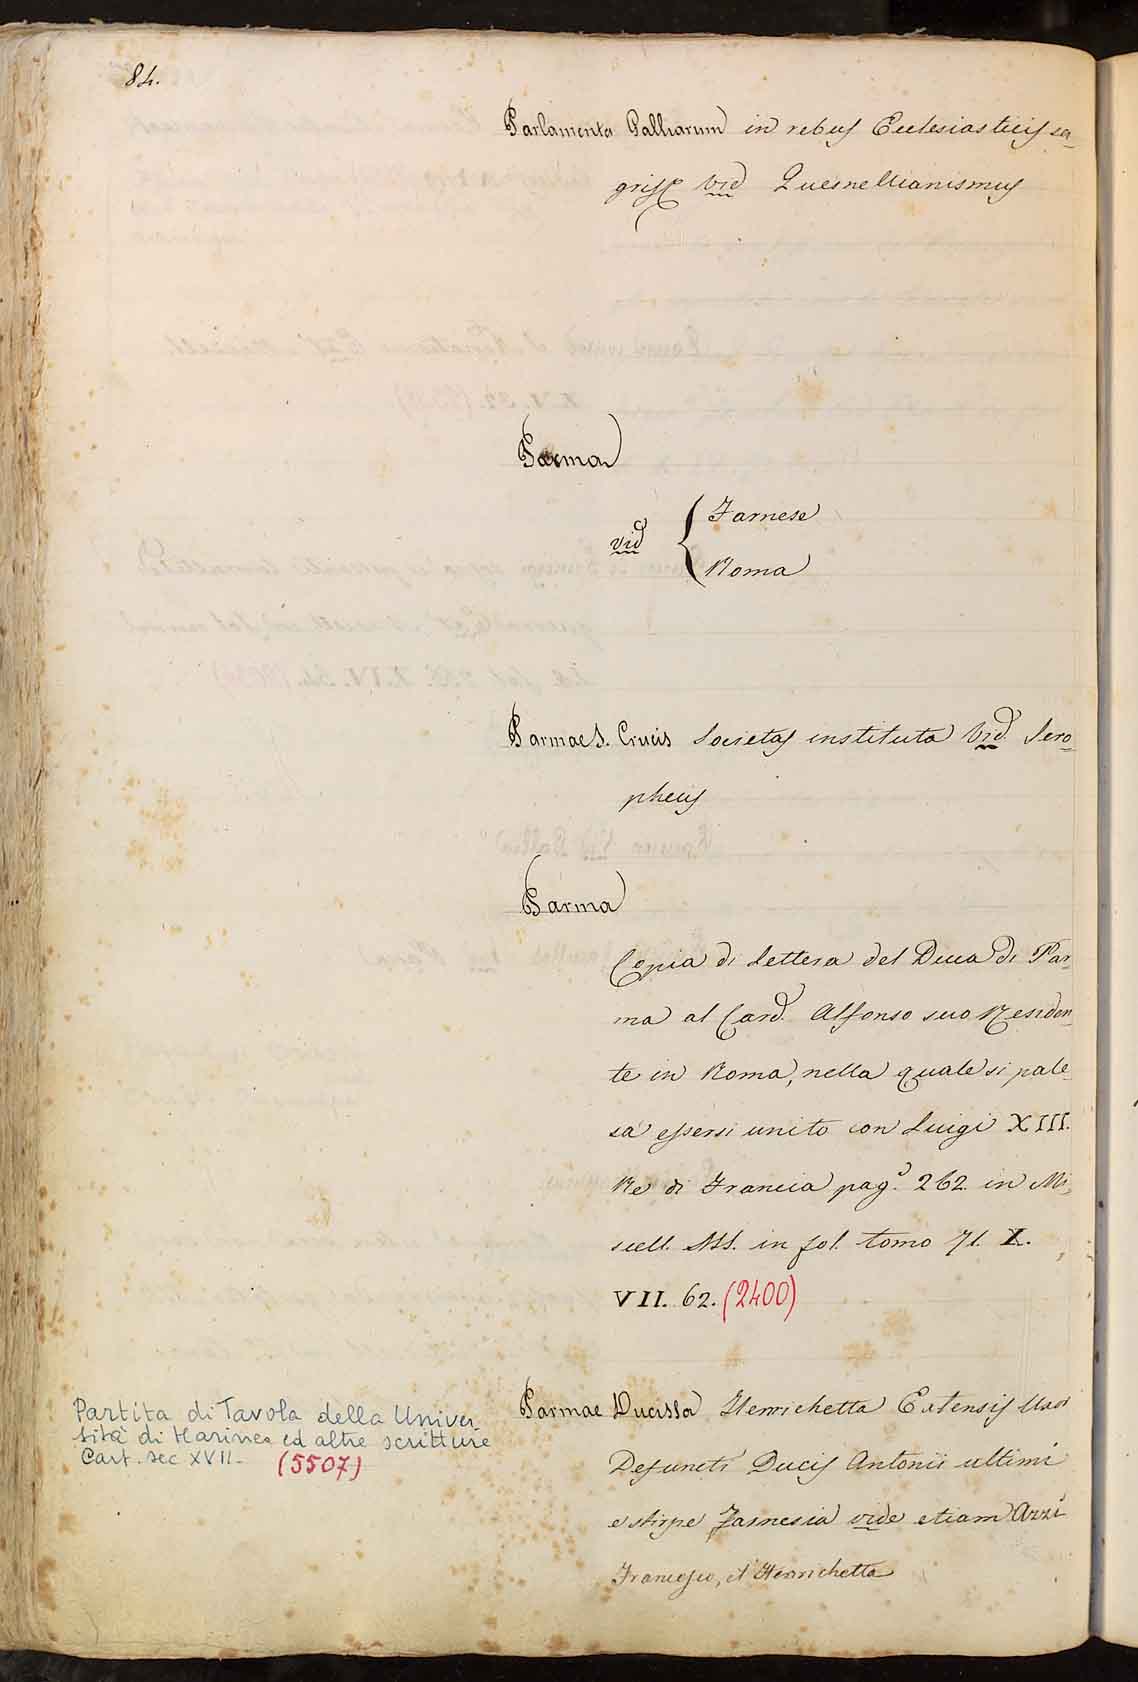 84.
Parlamenta Galliarum in rebus Ecclesiasticis sa-
grisq vid Quesnellianismus
Parma
vid { Farnese
Roma
Parmae S. Crucis Societas instituta Vid. Sera-
pheus
Parma
Copia di lettera del Duca di Par-
ma al Card. Alfonso suo Residen-
te in Roma, nella quale si pale-
sa essersi unito con Luigi XIII.
Re di Francia pag. 262. in Mi-
scell. MS. in fol. tomo 71. X.
VII. 62. (2400)
Partita di Tavola della Univer
sità di Marinea ed altre scritture
Cart. sec XVII- (5507)
Parmae Ducissa Henrichetta Estensis
Defuncti Ducis Antonii ultimi
e stirpe Farnesia vide etiam Azzi
Francesco, et Henrichetta